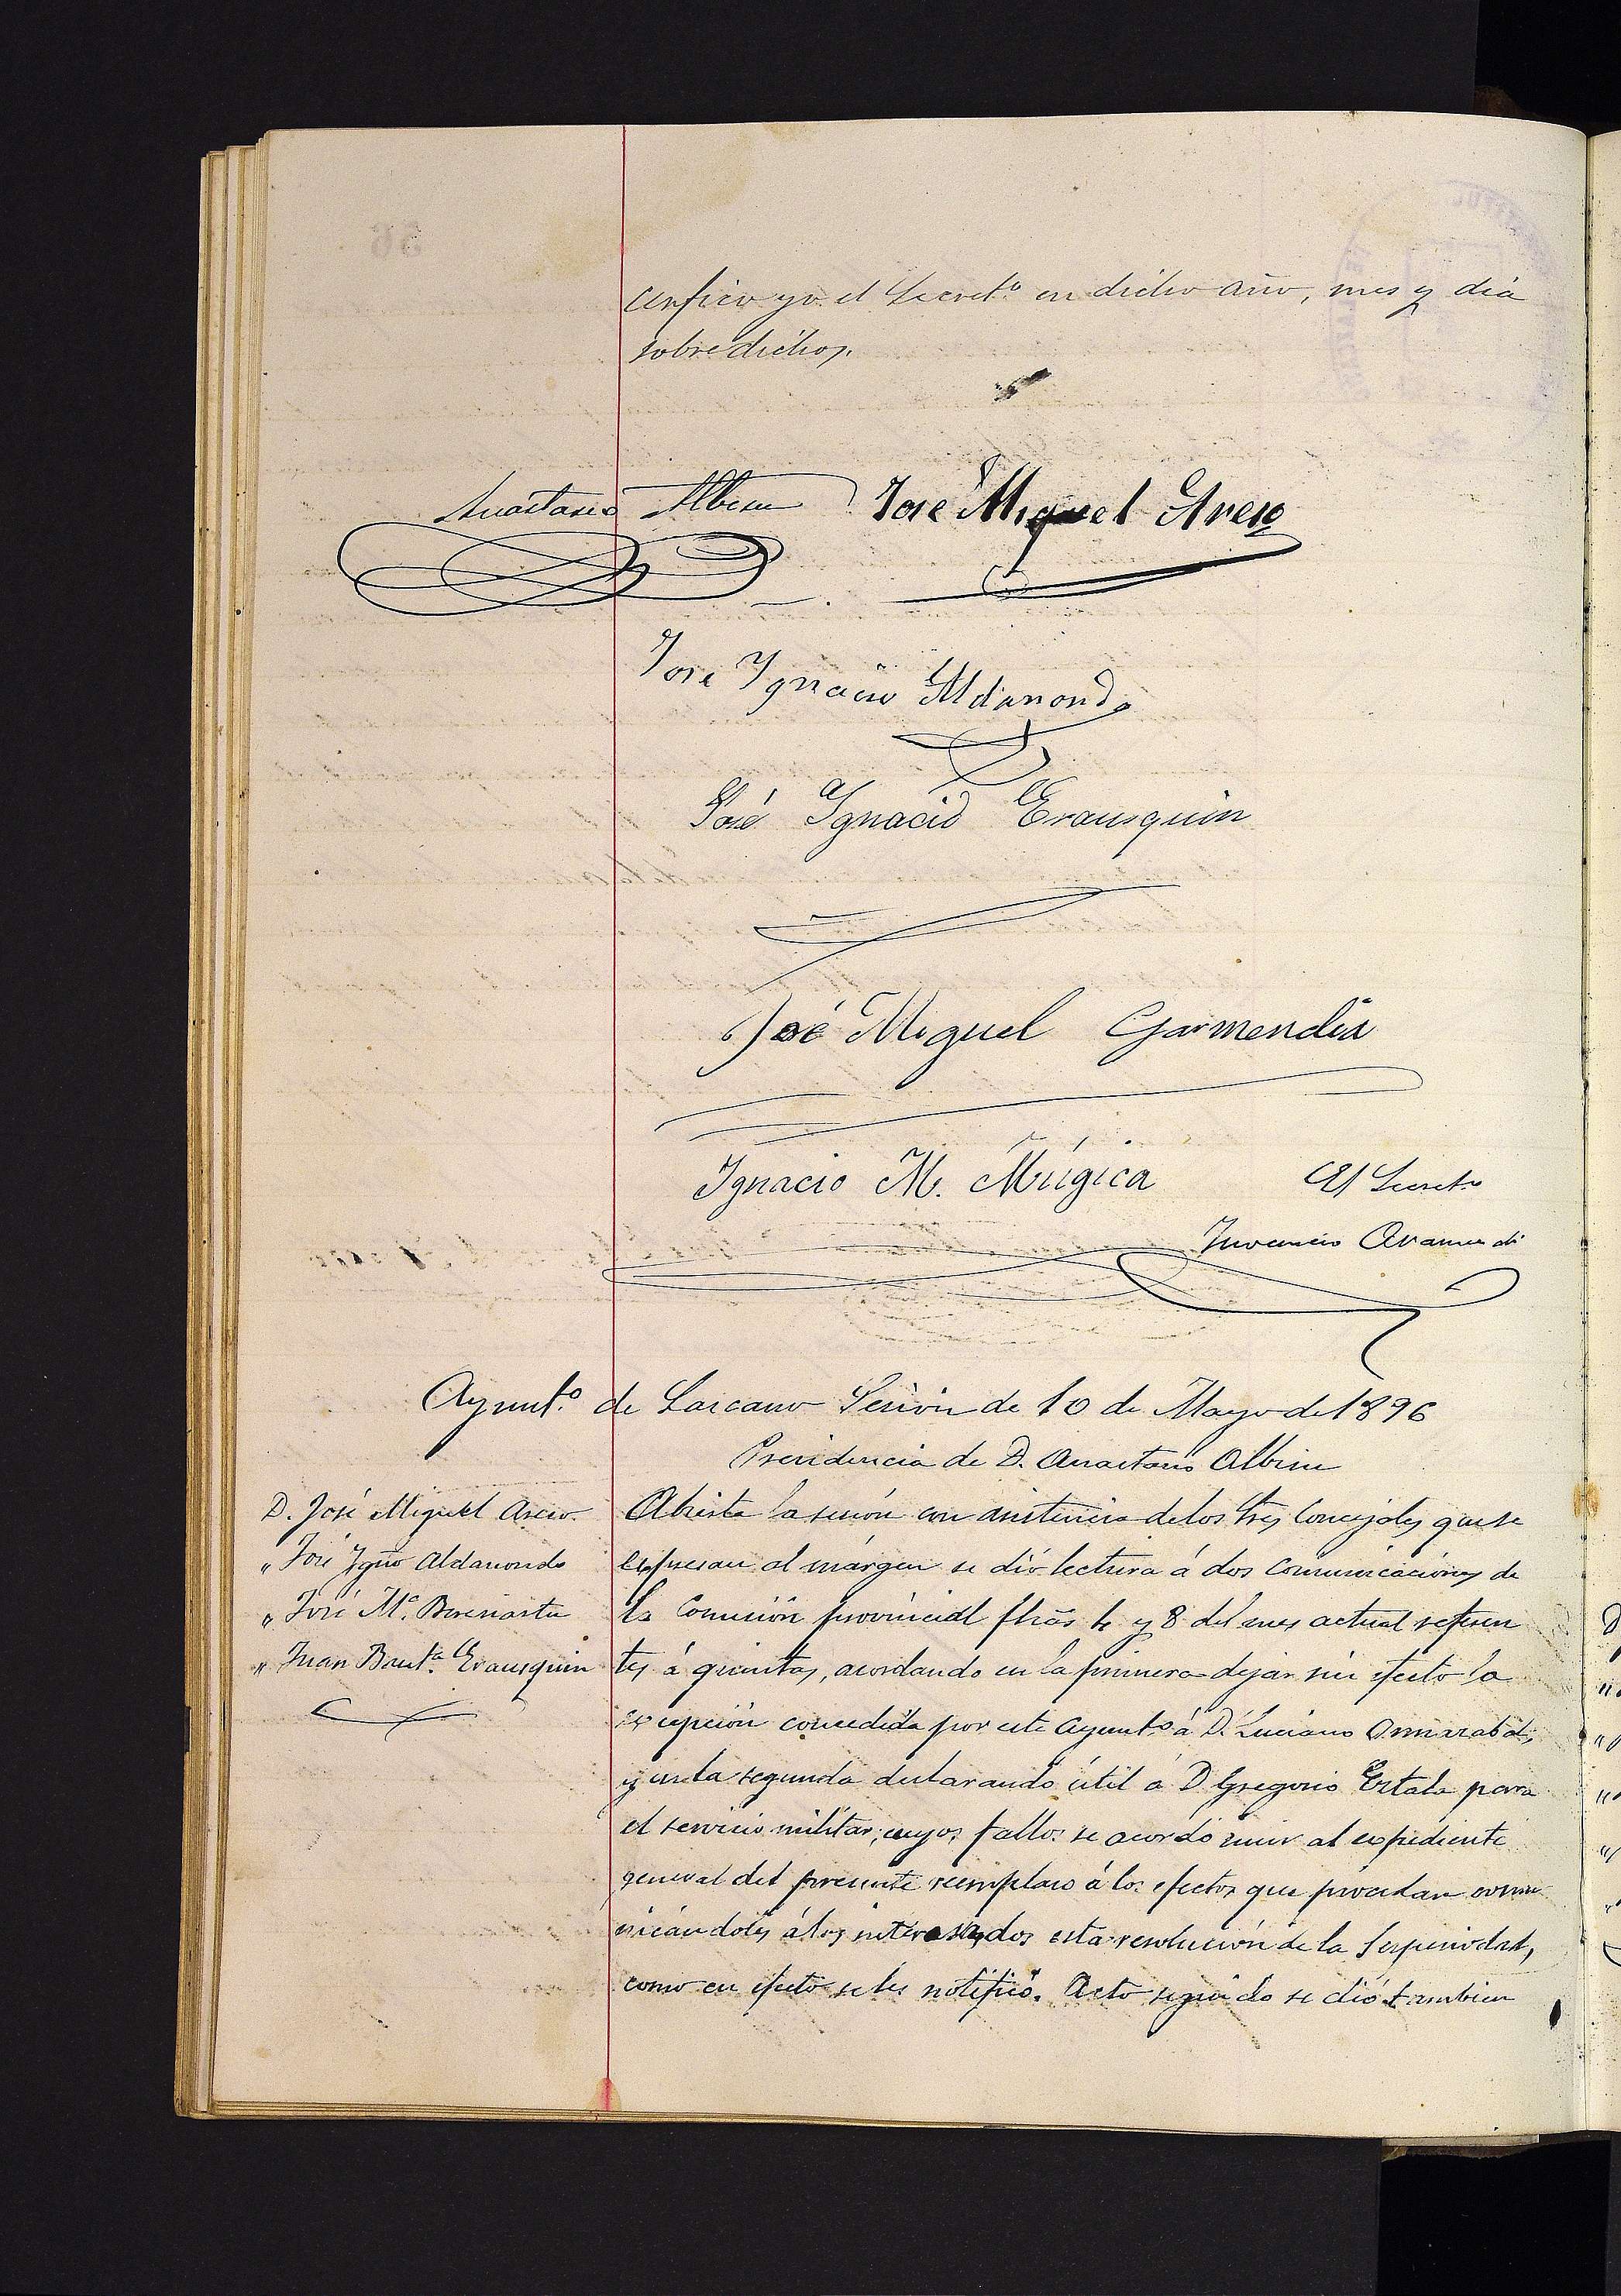 certifico yo el Secret.º en dicho año, mes y dia
sobre dichos.
Anastasio Albisu José Miguel Areso
José Ygnacio Aldanondo
José Ygnacio Erausquin
José Miguel Garmendia
Ygnacio M. Múgica El Secret.º
Juvencio Aramendi
Ayunt.º de Lazcano Sesión de 10 de Mayo de 1896
Presidencia de D. Anastasio Albisu
D. José Miguel Areso
" José Ygnº Aldanondo
" José M.ª
" Juan Baut.ª Erausquin
Abierta la sesión con asistencia de los tres Concejales que se
espresan al márgen se dió lectura á dos comunicaciónes de
la Comisión provincial fhas 4 y 8 del mes actual referen
tes á quintas, acordando en la primera dejar sin efecto la
excepción concedida por este Ayunt.º á D. Luciano
y en la segunda declarando útil á D. Gregorio para
el servicio militar; cuyos fallos se acordó unir al expediente
general del presente reemplazo á los efectos que procedan comu
nicándoles á los interesados esta resolución de la Superiodad,
como en efecto se les notificó. Acto seguido se dió tambien